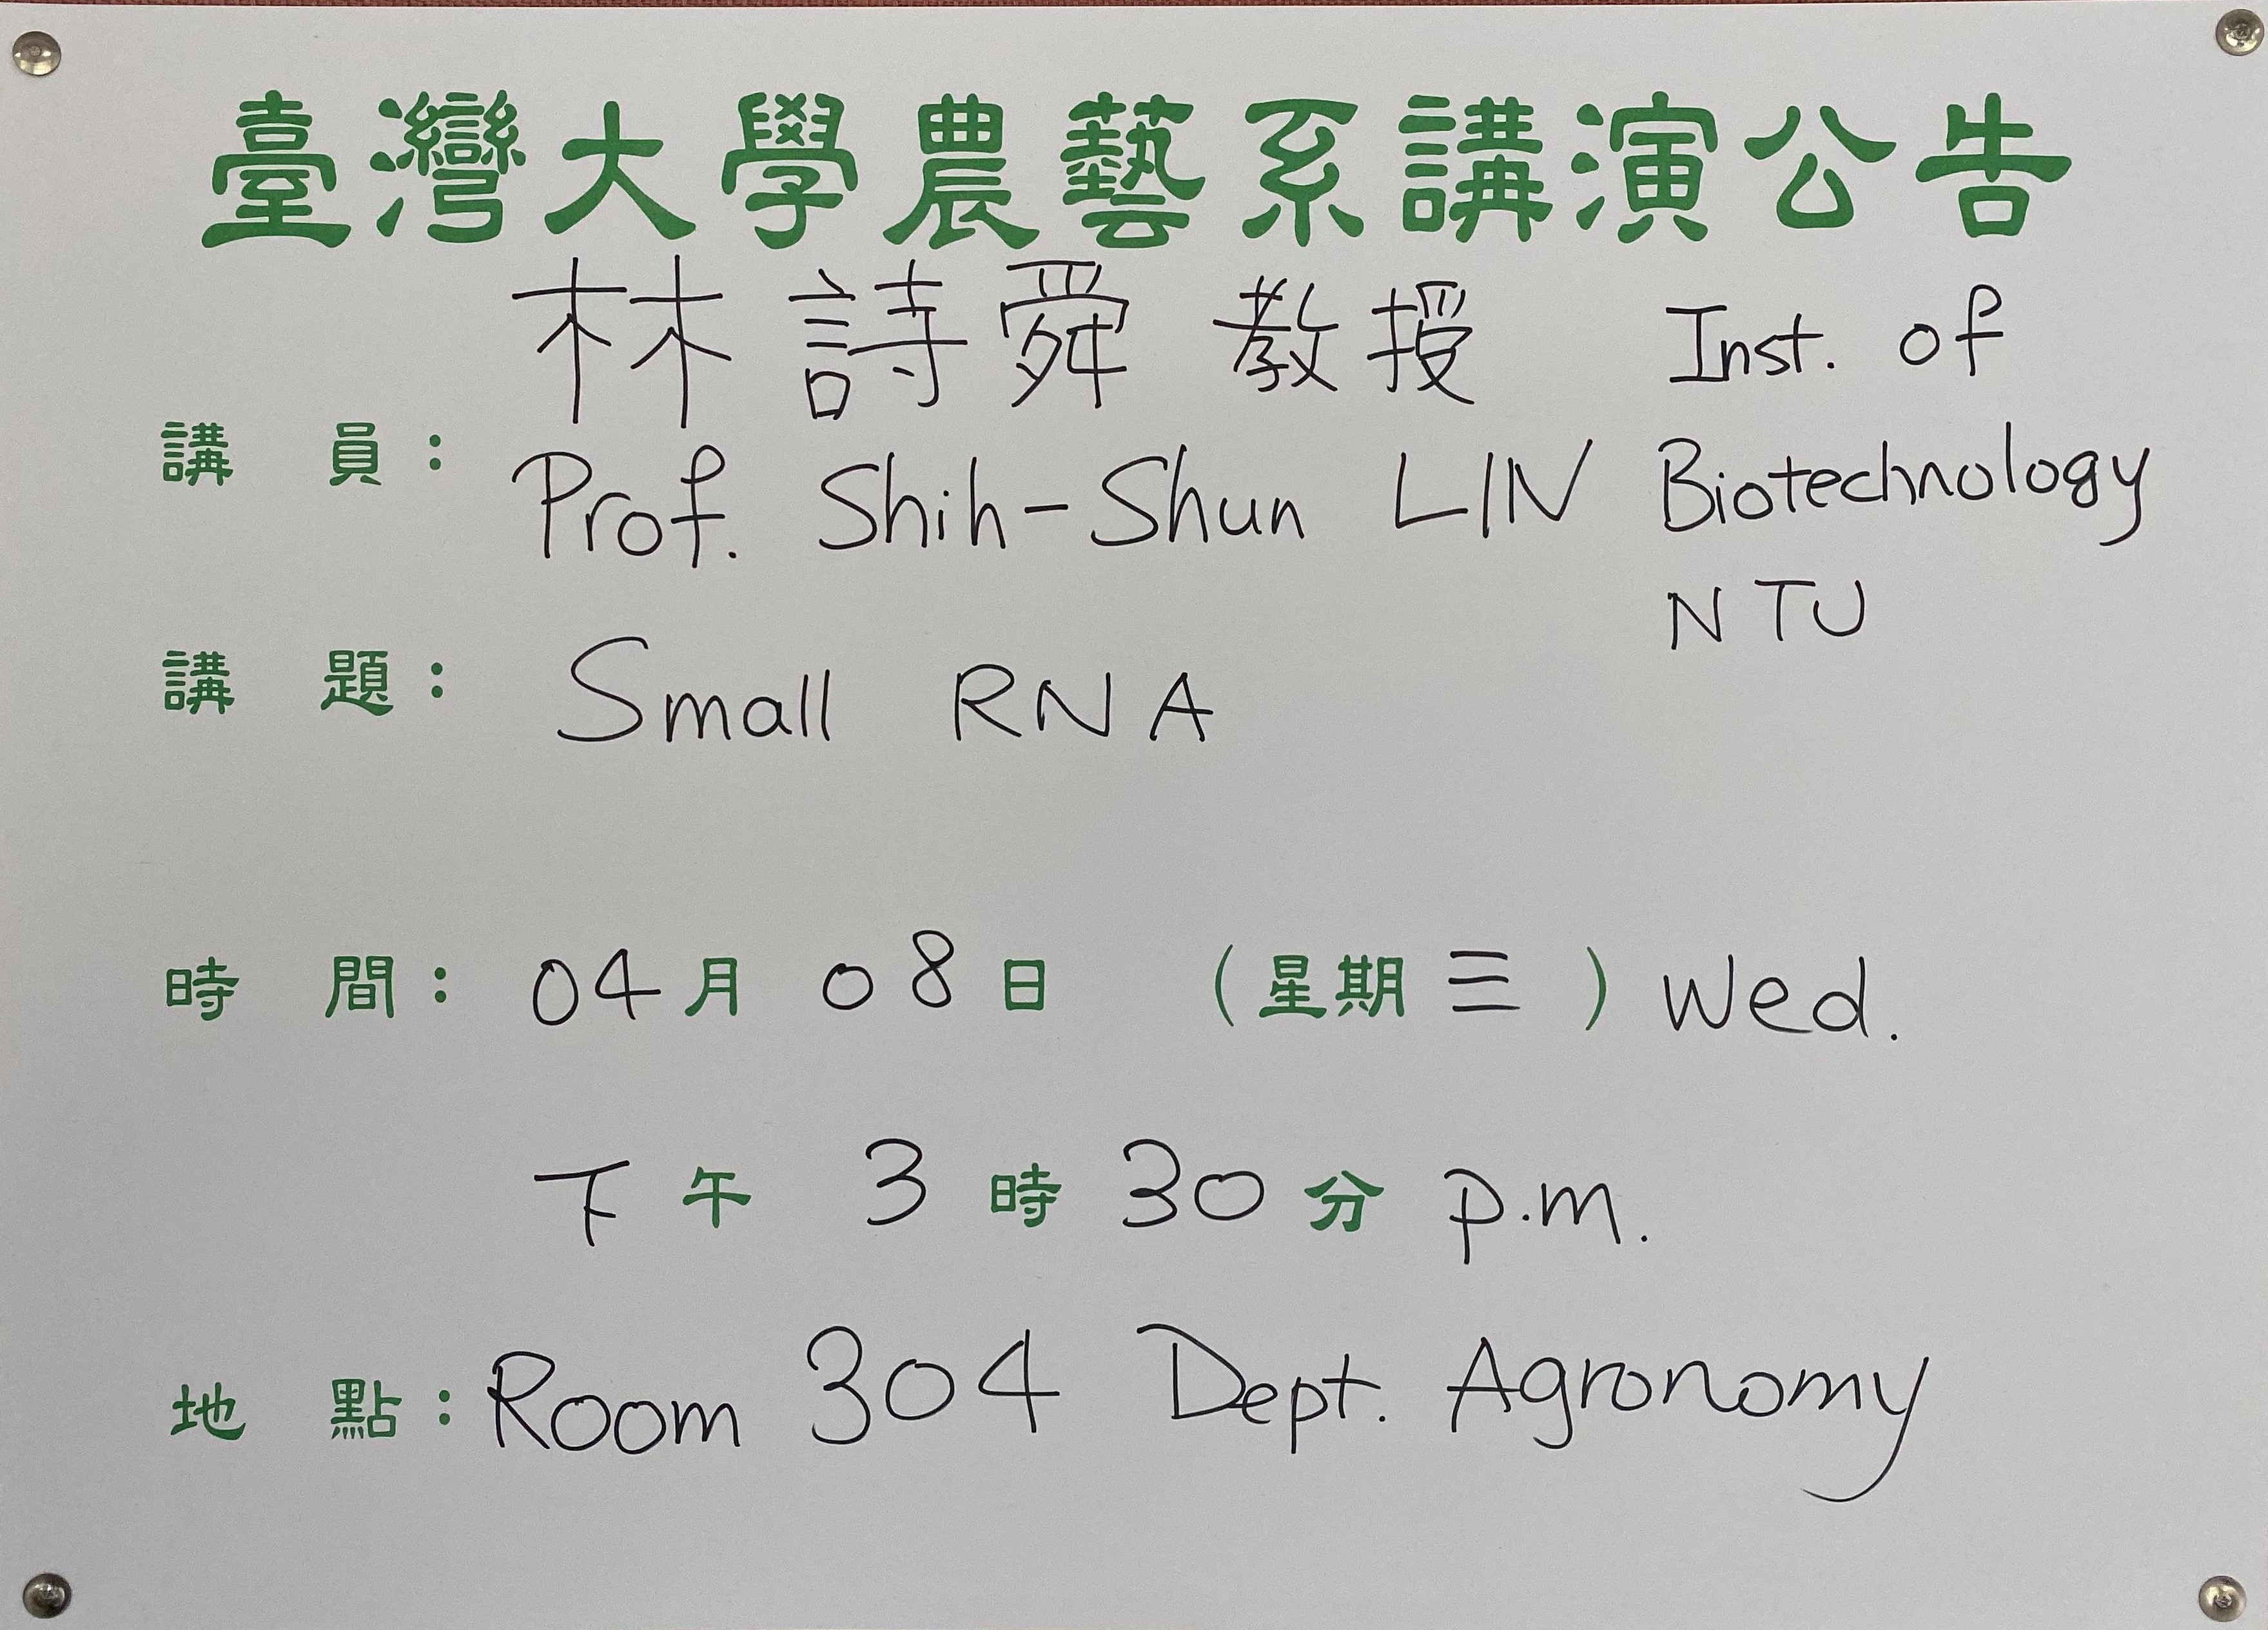 臺灣大學農藝系講演公告
林詩舜 教授 Inst. of
講員：
Prof. Shih-Shun LIN Biotechnology
NTU
講題： Small RNA
時間： 04月08日 （星期三） Wed.
下午 3時30分 p.m.
地點： Room 304 Dept. Agronomy